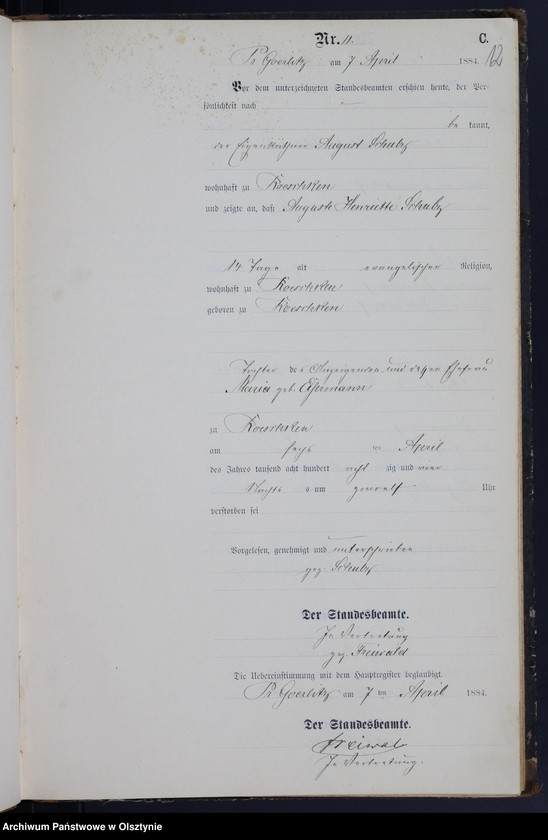 Nr. 11. C.
12
Pr Goerlitz am 7 April 1884.
Vor dem unterzeichneten Standesbeamten erschien heute, der Per-
sönlichkeit nach
be kannt,
der Eigenkäthner August Schulz
wohnhaft zu Koeschken
und zeigte an, daß Auguste Henriette Schulz
14 Tage alt evangelischer Religion,
wohnhaft zu Koeschken
geboren zu Koeschken
Tochter des Anzeigenden und dessen Ehefrau
Maria geb.
zu Koeschken
am sechs ten April
des Jahres tausend acht hundert acht zig und vier
Nachts um zwoelf Uhr
verstorben sei
Vorgelesen, genehmigt und unterschrieben
gez. Schulz
Der Standesbeamte.
In Vertretung
gez. Freiwald
Die Uebereinstimmung mit dem Hauptregister beglaubigt.
Pr Goerlitz am 7 ten April 1884.
Der Standesbeamte.
Freiwald
In Vertretung.
Archiwum Państwowe w Olsztynie